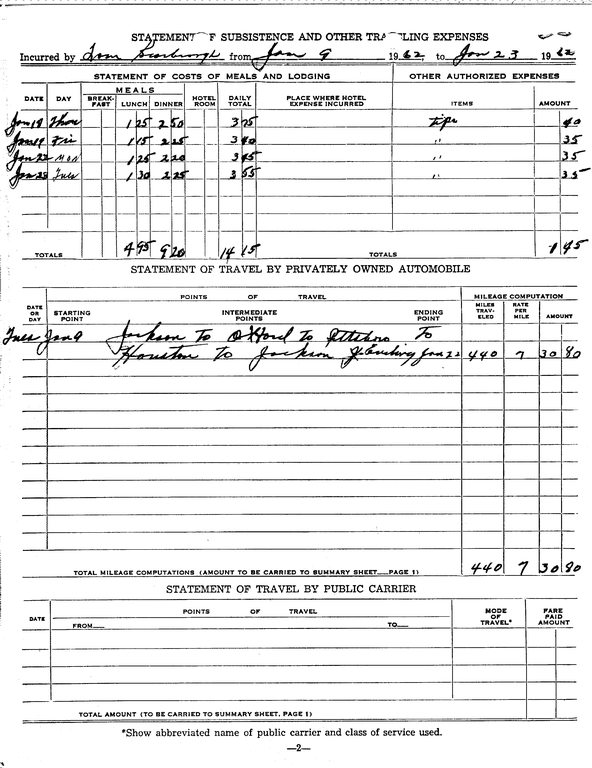 STATEMENT OF SUBSISTENCE AND OTHER TRAVELING EXPENSES
Incurred by Tom Scarbrough from Jan 9 1962, to Jan 23 1962
STATEMENT OF COSTS OF MEALS AND LODGING OTHER AUTHORIZED EXPENSES
DATE DAY MEALS HOTEL ROOM DAILY TOTAL PLACE WHERE HOTEL EXPENSE INCURRED ITEMS AMOUNT
BREAK-FAST LUNCH DINNER
Thur 1 25 2 50 3 75 tips 40
Fri 1 15 2 25 3 40 " 35
Jan 22 Mon 1 25 2 20 3 45 " 35
Jan 23 Tues 1 30 2 25 3 55 " 35
TOTALS 4 95 9 20 14 15 TOTALS 1 45
STATEMENT OF TRAVEL BY PRIVATELY OWNED AUTOMOBILE
DATE OR DAY POINTS OF TRAVEL MILEAGE COMPUTATION
STARTING POINT INTERMEDIATE POINTS ENDING POINT MILES TRAV-ELED RATE PER MILE AMOUNT
Tues Jan 9 Jackson to Oxford to Pittsboro To
Houston to Jackson Jan 22 440 7 30 80
TOTAL MILEAGE COMPUTATIONS (AMOUNT TO BE CARRIED TO SUMMARY SHEET.....PAGE 1) 440 7 30 80
STATEMENT OF TRAVEL BY PUBLIC CARRIER
DATE POINTS OF TRAVEL MODE OF TRAVEL* FARE PAID AMOUNT
FROM TO
TOTAL AMOUNT (TO BE CARRIED TO SUMMARY SHEET, PAGE 1)
*Show abbreviated name of public carrier and class of service used.
—2—